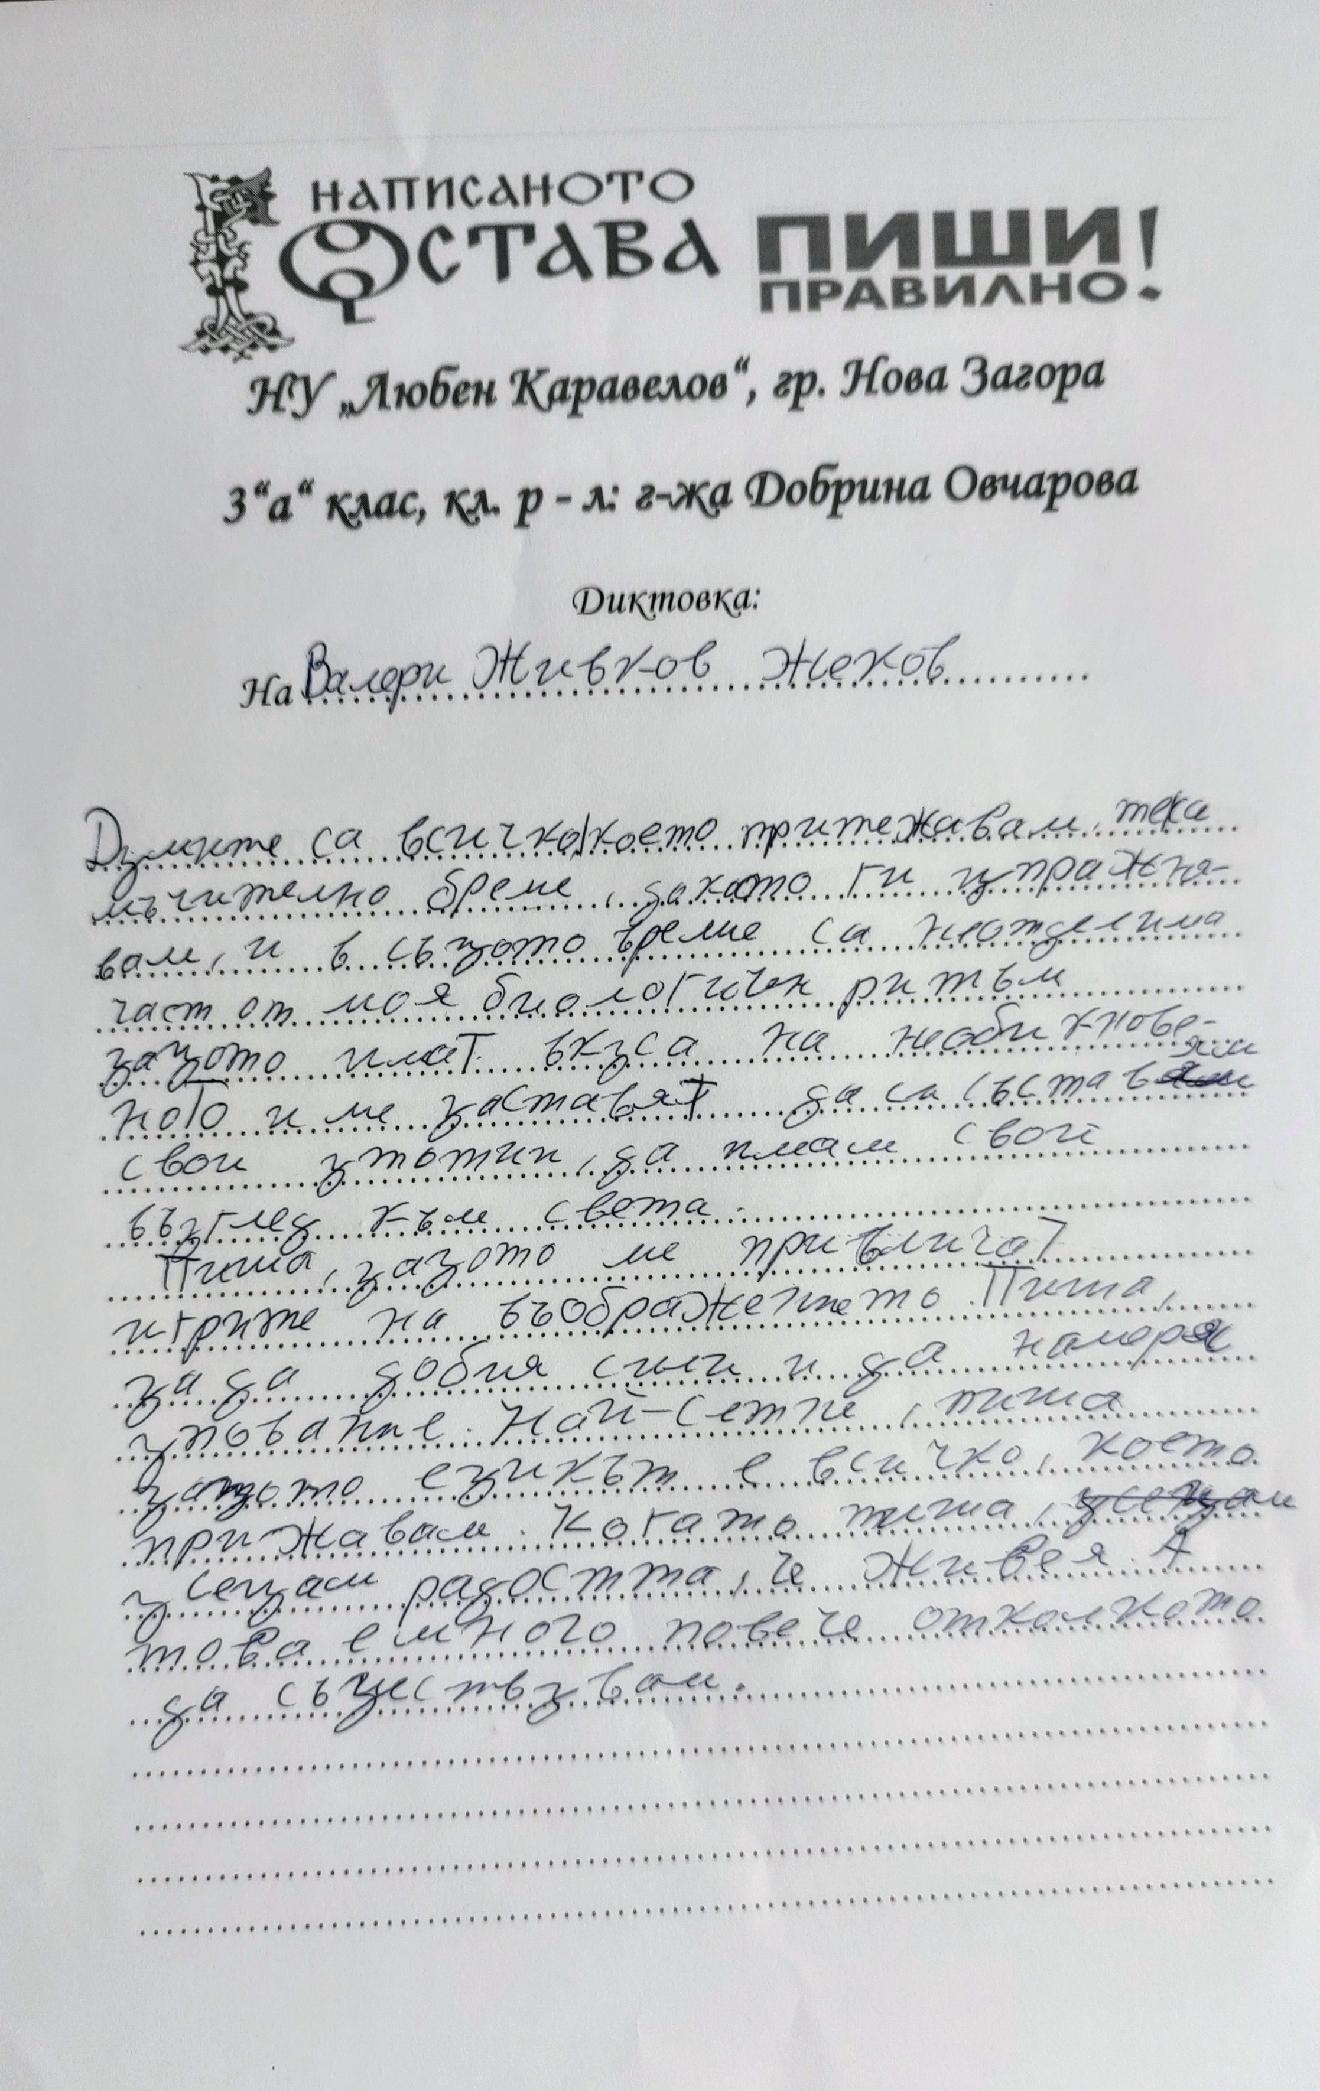 НАПИСАНОТО
ОСТАВА ПИШИ
ПРАВИЛНО!
НУ „Любен Каравелов“, гр. Нова Загора
3“а“ клас, кл. р - л: г-жа Добрина Овчарова
Диктовка:
На Валери Живков Жеков
Думите са всичко, което притежавам, тека
мъчително бреме, докато ги упражня-
вам, и в същото време са неотделима
част от моя биологичен ритъм
защото имат вкуса на необикнове-
ното и ме заставят да са съставям
свои утопии, да имам свой
възглед към света.
Пиша, защото ме привличат
игрите на въображението. Пиша,
за да добия сили и да намеря
упование. Най-сетне, пиша
защото езикът е всичко, което
прижавам. Когато пиша,
усещам радостта, че живея. А
това е много повече отколкото
да съществувам.